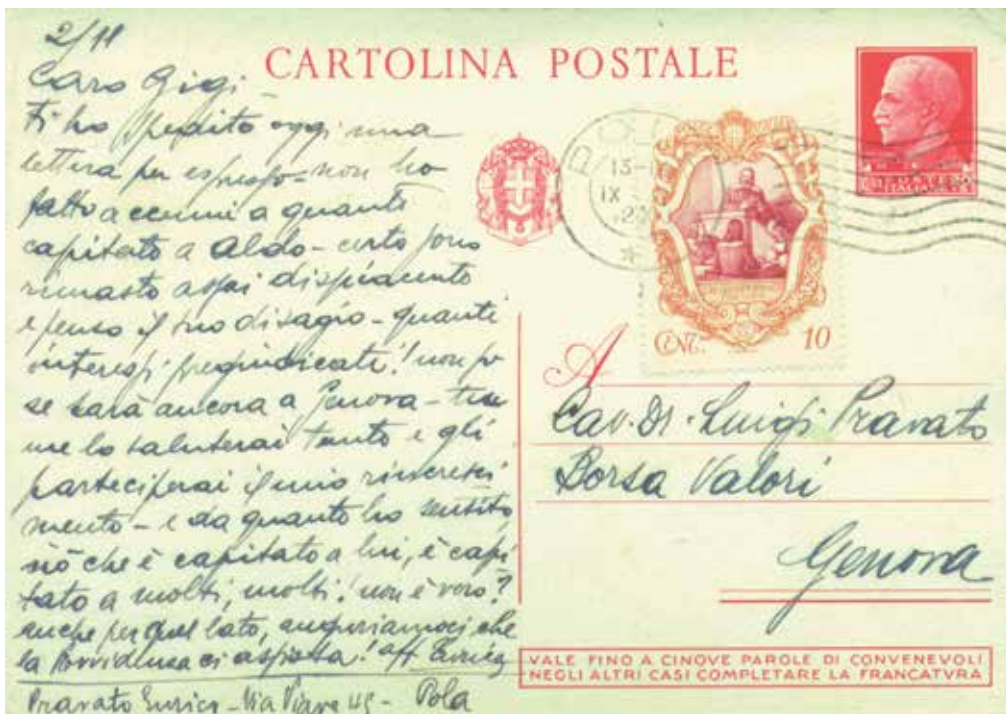 2/11
CARTOLINA POSTALE
Caro Gigi -
Ti ho spedito oggi una
lettera per espresso - non ho
fatto accenni a quanto
capitato a Aldo - certo sono
rimasto assai dispiacente
e penso il suo disagio - quanti
interessi pregiudicati! non so
se sarà ancora a Genova - tu
me lo saluterai tanto e gli
parteciperai il mio rincresci
mento - e da quanto ho sentito,
ciò che è capitato a lui, è capi
tato a molti, molti! non è vero?
anche per quel lato, auguriamoci che
la Provvidenza ci assista! aff Enrico
Pravato Enrico - Via Piave 45 - Pola
13-
IX
CENT. 10
A
Cav. Dr. Luigi Pravato
Borsa Valori
Genova
VALE FINO A CINQVE PAROLE DI CONVENEVOLI
NEGLI ALTRI CASI COMPLETARE LA FRANCATVRA